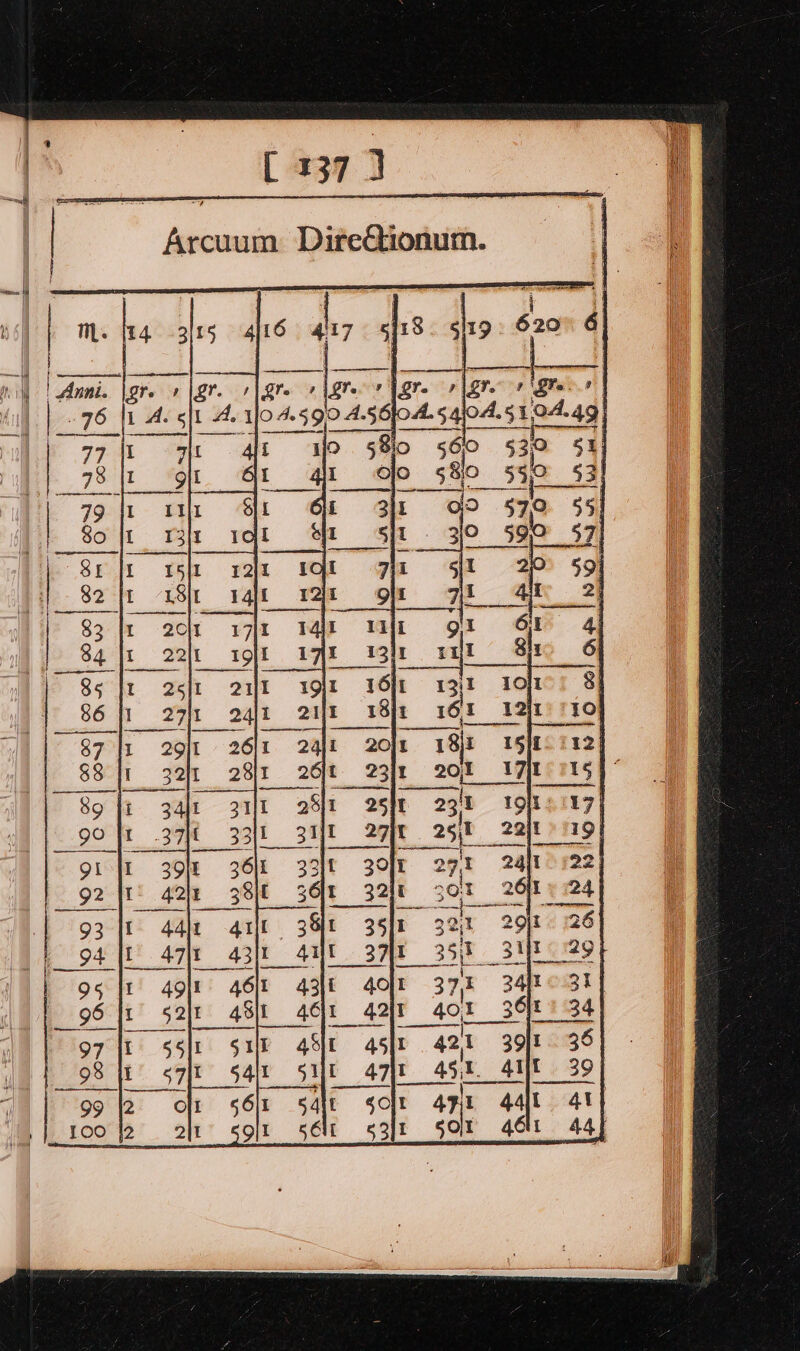 [ 137 ]
Arcuum Directionum.
♏. 14 3 15 4 16 4 17 5 18 5 19 6 20 6
Anni. gr. ' gr. ' gr. ' gr. ' gr. ' gr. ' gr. '
76 1 A. 5 1 A. 1 0 A. 59 0 A. 56 0 A. 54 0 A. 51 0 A. 49
77 1 7 1 4 1 1 0 58 0 56 0 53 0 51
78 1 9 1 6 1 4 1 0 0 58 0 55 0 53
79 1 11 1 8 1 6 1 3 1 0 0 57 0 55
80 1 13 1 10 1 8 1 5 1 3 0 59 0 57
81 1 15 1 12 1 10 1 7 1 5 1 2 0 59
82 1 18 1 14 1 12 1 9 1 7 1 4 1 2
83 1 20 1 17 1 14 1 11 1 9 1 6 1 4
84 1 22 1 19 1 17 1 13 1 11 1 8 1 6
85 1 25 1 21 1 19 1 16 1 13 1 10 1 8
86 1 27 1 24 1 21 1 18 1 16 1 12 1 10
87 1 29 1 26 1 24 1 20 1 18 1 15 1 12
88 1 32 1 28 1 26 1 23 1 20 1 17 1 15
89 1 34 1 31 1 28 1 25 1 23 1 19 1 17
90 1 37 1 33 1 31 1 27 1 25 1 22 1 19
91 1 39 1 36 1 33 1 30 1 27 1 24 1 22
92 1 42 1 38 1 36 1 32 1 30 1 26 1 24
93 1 44 1 41 1 38 1 35 1 32 1 29 1 26
94 1 47 1 43 1 41 1 37 1 35 1 31 1 29
95 1 49 1 46 1 43 1 40 1 37 1 34 1 31
96 1 52 1 48 1 46 1 42 1 40 1 36 1 34
97 1 55 1 51 1 48 1 45 1 42 1 39 1 36
98 1 57 1 54 1 51 1 47 1 45 1 41 1 39
99 2 0 1 56 1 54 1 50 1 47 1 44 1 41
100 2 2 1 59 1 56 1 53 1 50 1 46 1 44